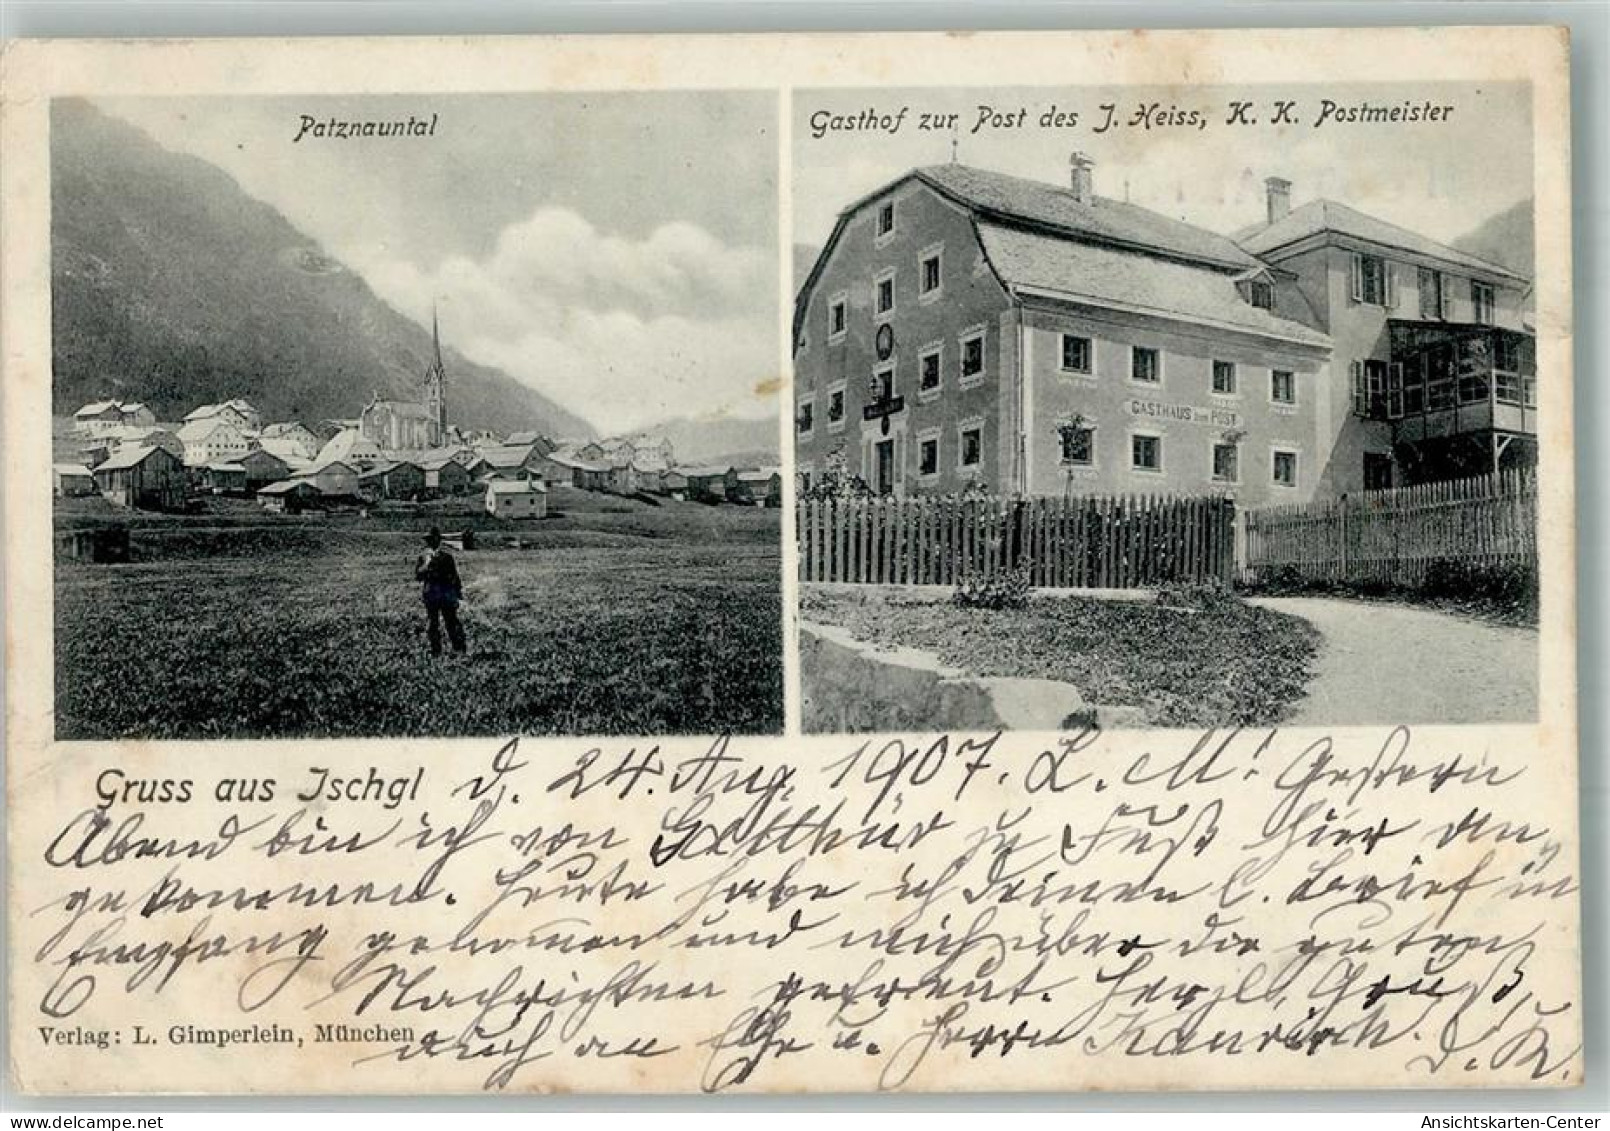 Patznauntal
Gasthof zur Post des J. Heiss, K. K. Postmeister
GASTHAUS ZUR POST
Gruss aus Ischgl d. 24. Aug. 1907. L. M! Gestern
Abend bin ich von Galthür zu Fuß hier an-
gekommen. Heute habe ich deinen l. Brief in
Empfang genommen und mich über die guten
Nachrichten gefreut. Herzl. Gruß,
Verlag: L. Gimperlein, München
auch an u. Herrn
d. K.
Ansichtskarten-Center